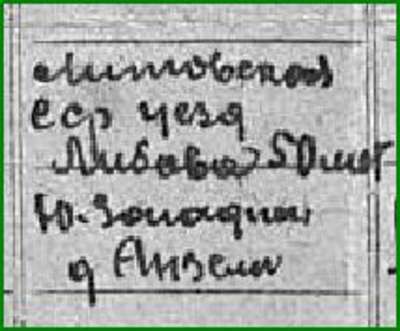 Литовская
сср уезд
Либава 50 км от
Ю. Западнее
д Анзели